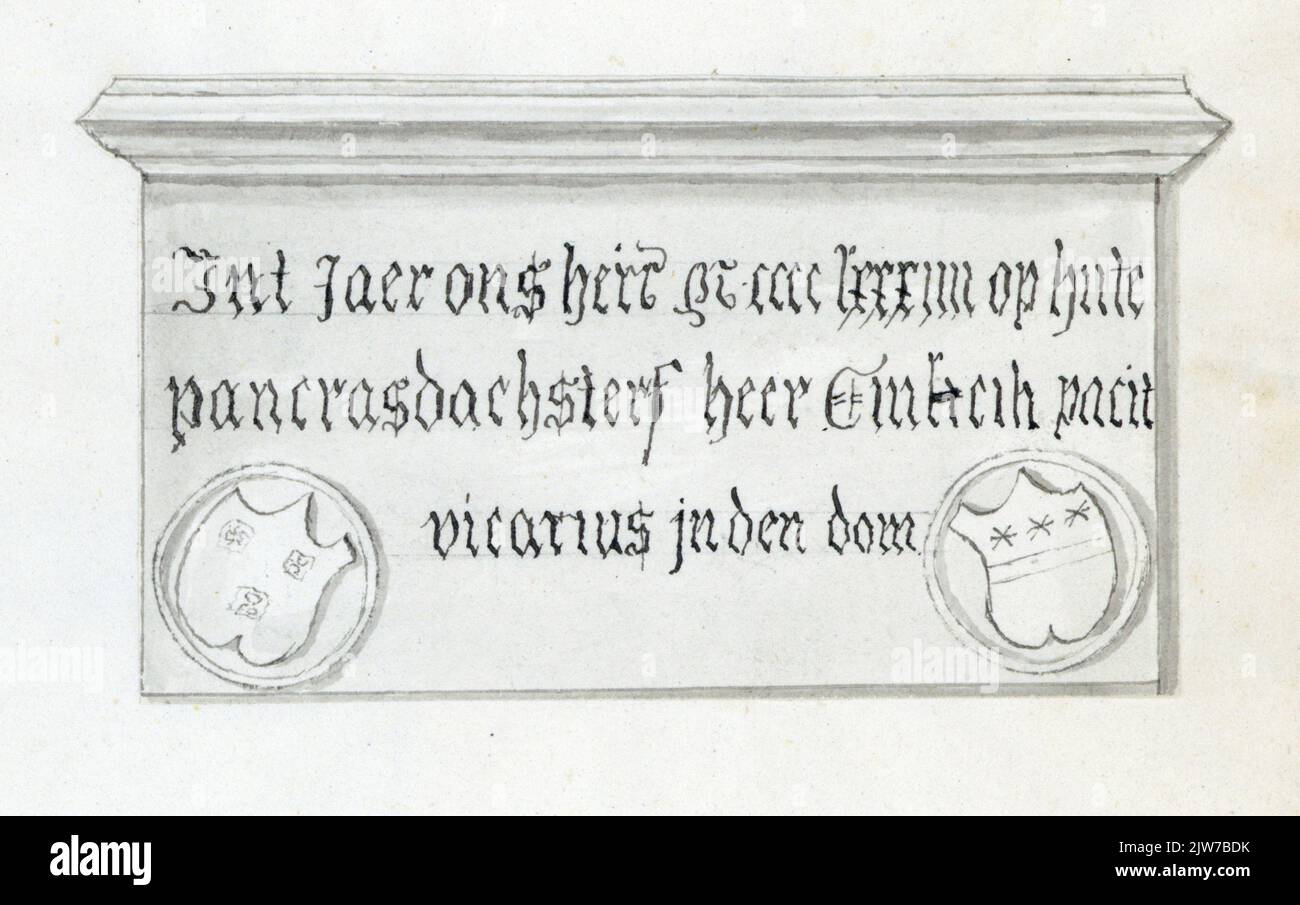 Int Jaer ons heir̃ m̃ cccc lxxxiiii op sinte
pancrasdach sterf heer pacit
vicarius jnden dom
a
alamy
Image ID: 2JW7BDK
www.alamy.com